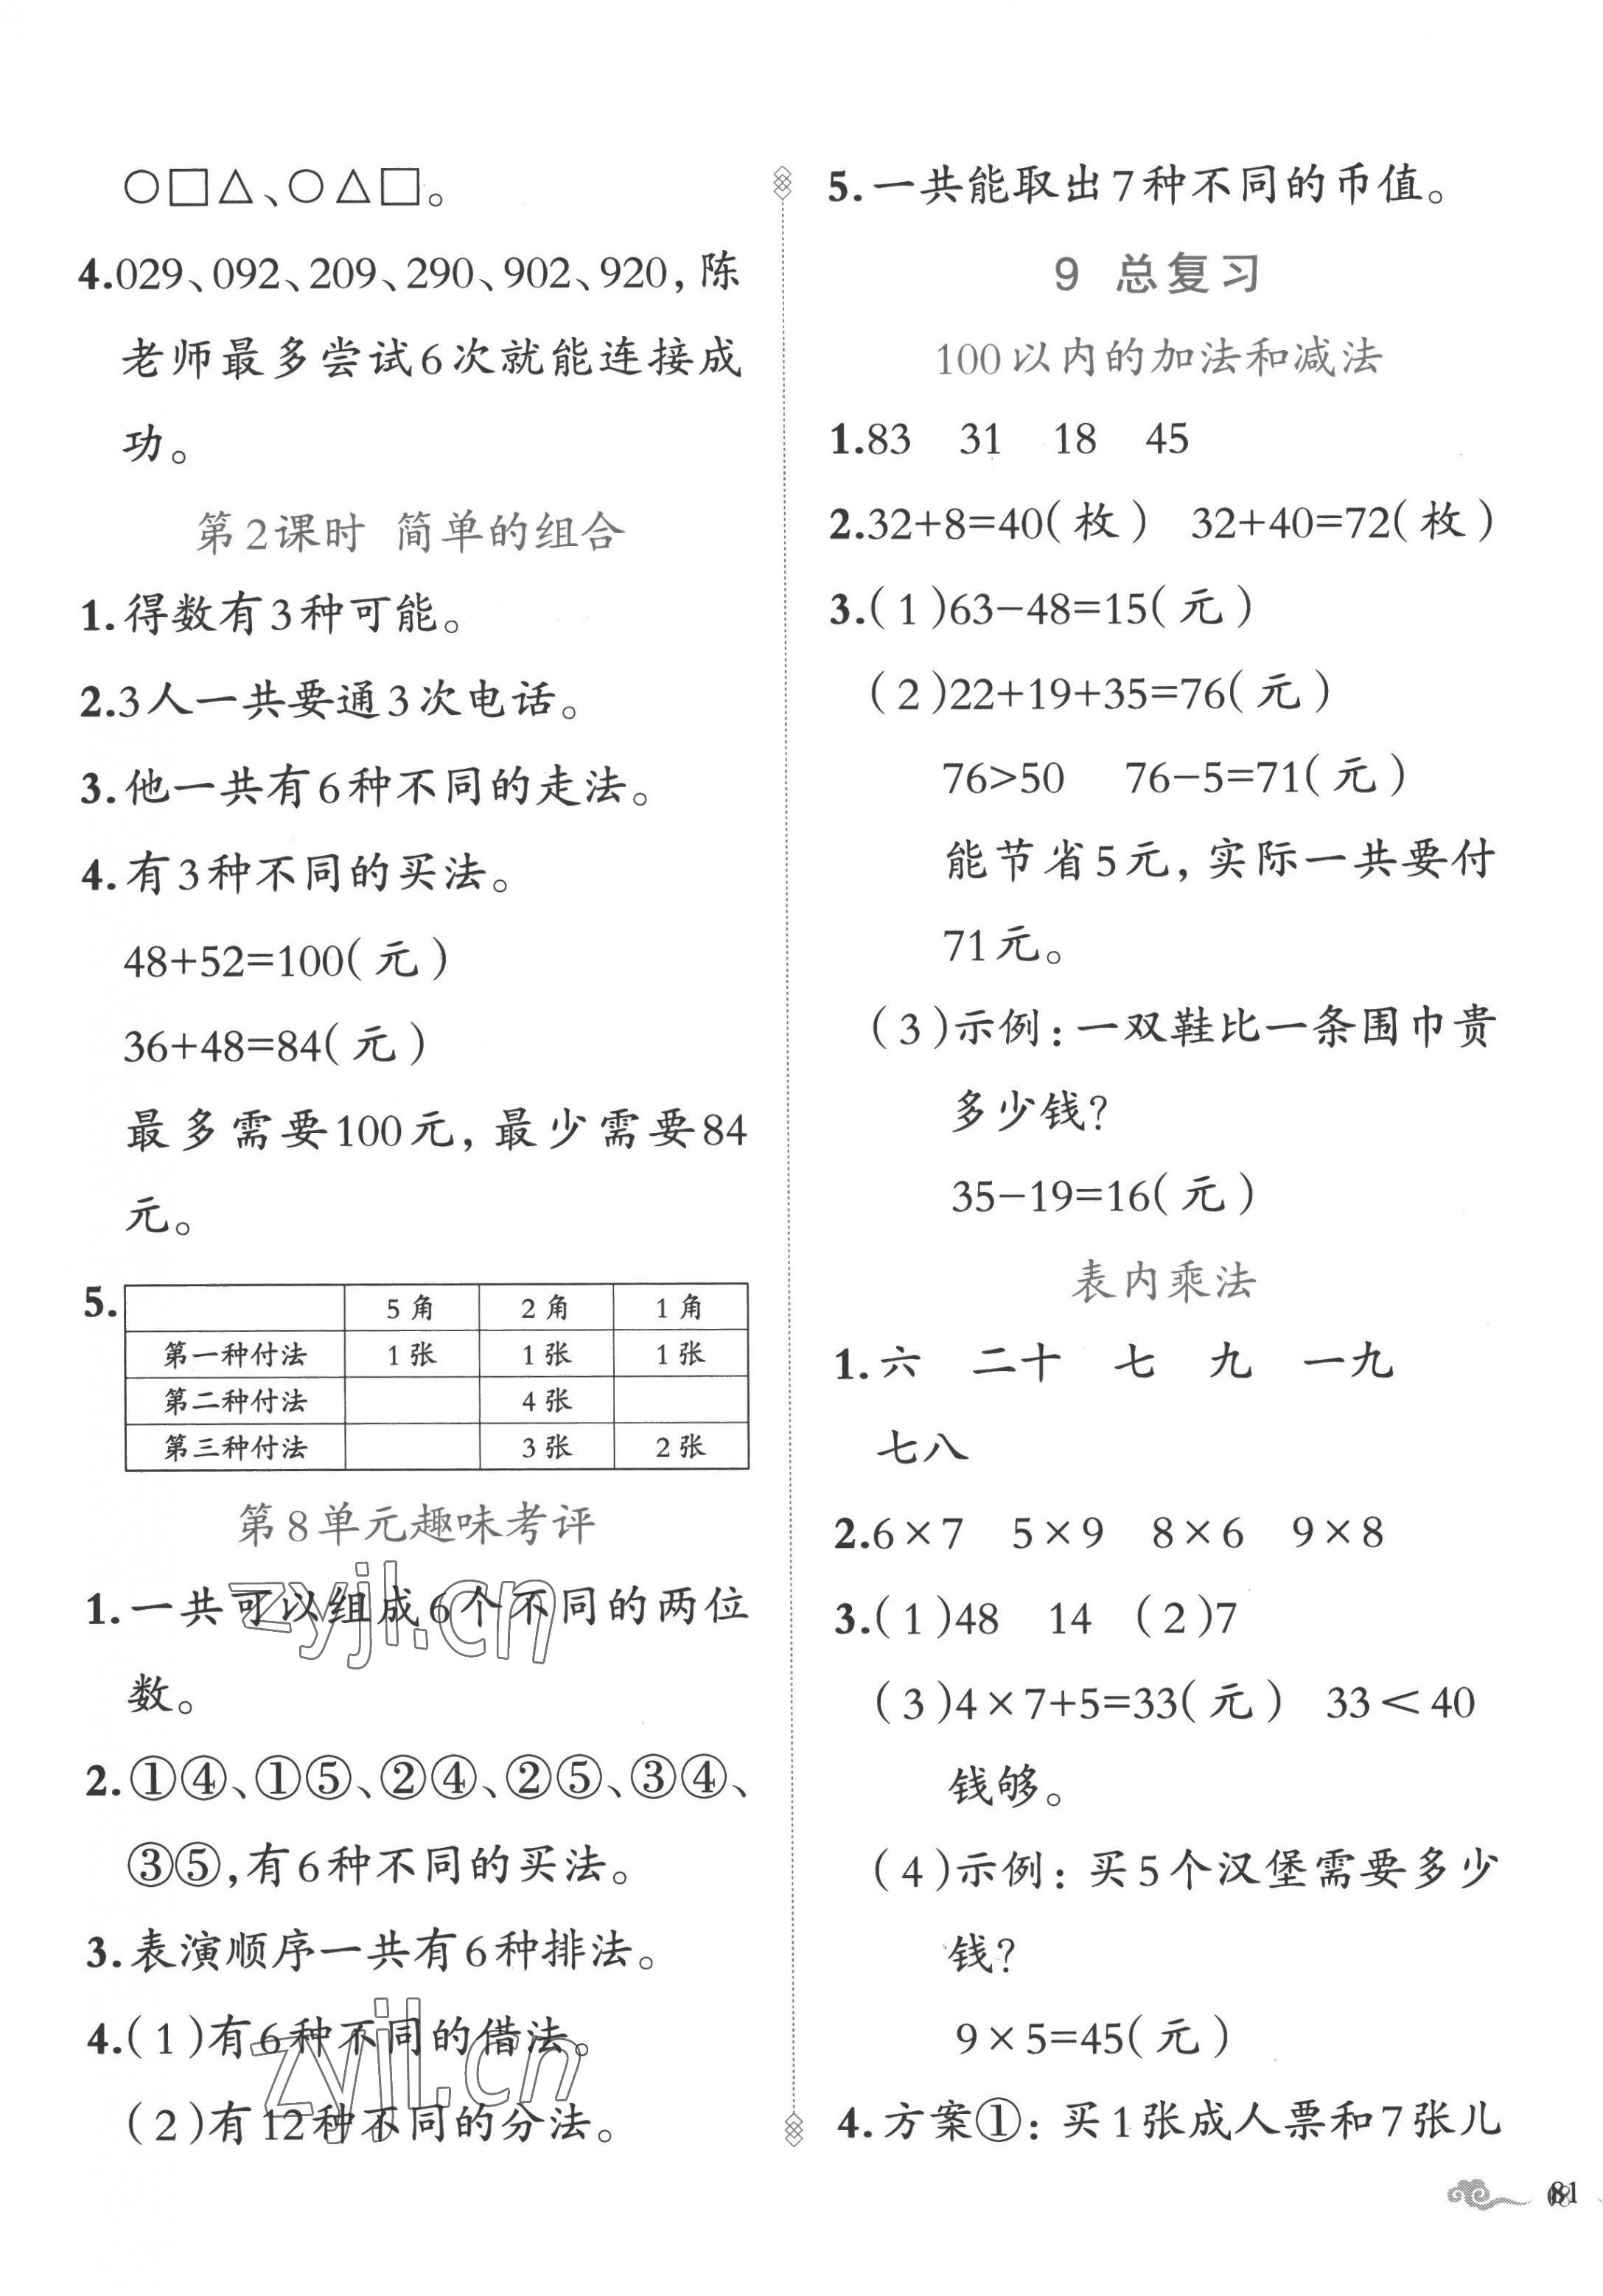 ○□△、○△□。
4.029、092、209、290、902、920，陈
老师最多尝试6次就能连接成
功。
第2课时 简单的组合
1.得数有3种可能。
2.3人一共要通3次电话。
3.他一共有6种不同的走法。
4.有3种不同的买法。
48+52=100(元)
36+48=84(元)
最多需要100元，最少需要84
元。
5.
5角 2角 1角
第一种付法 1张 1张 1张
第二种付法 4张
第三种付法 3张 2张
第8单元趣味考评
1.一共可以组成6个不同的两位
数。
2.①④、①⑤、②④、②⑤、③④、
③⑤，有6种不同的买法。
3.表演顺序一共有6种排法。
4.(1)有6种不同的借法。
(2)有12种不同的分法。
zyjl.cn
zyjl.cn
5.一共能取出7种不同的币值。
9 总复习
100以内的加法和减法
1.83 31 18 45
2.32+8=40(枚) 32+40=72(枚)
3.(1)63-48=15(元)
(2)22+19+35=76(元)
76>50 76-5=71(元)
能节省5元，实际一共要付
71元。
(3)示例：一双鞋比一条围巾贵
多少钱？
35-19=16(元)
表内乘法
1.六 二十 七 九 一九
七八
2.6×7 5×9 8×6 9×8
3.(1)48 14 (2)7
(3)4×7+5=33(元) 33＜40
钱够。
(4)示例：买5个汉堡需要多少
钱？
9×5=45(元)
4.方案①：买1张成人票和7张儿
81